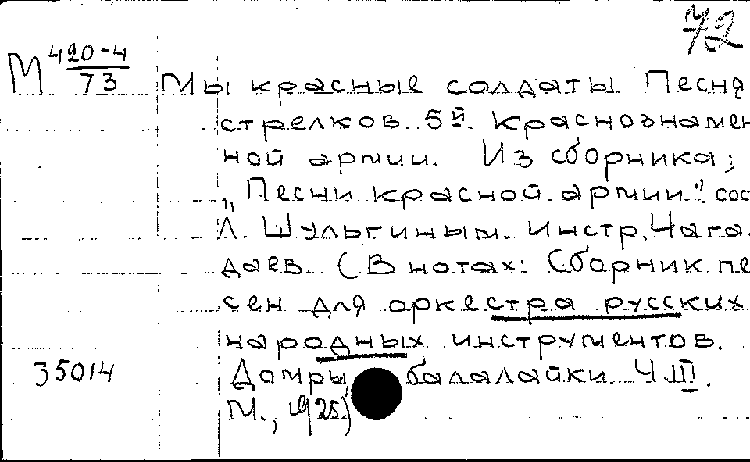 72
М 420-4/73 Мы красные солдаты. Песня
стрелков 5й Краснознамен
ной армии. Из сборника;
„Песни красной армии" сос
Л. Шульгиным. Инстр. Чага
даев. (В нотах: Сборник пе
сен для оркестра русских
народных инструментов.
35014 Домры балалайки. Ч. III.
М., 1925)